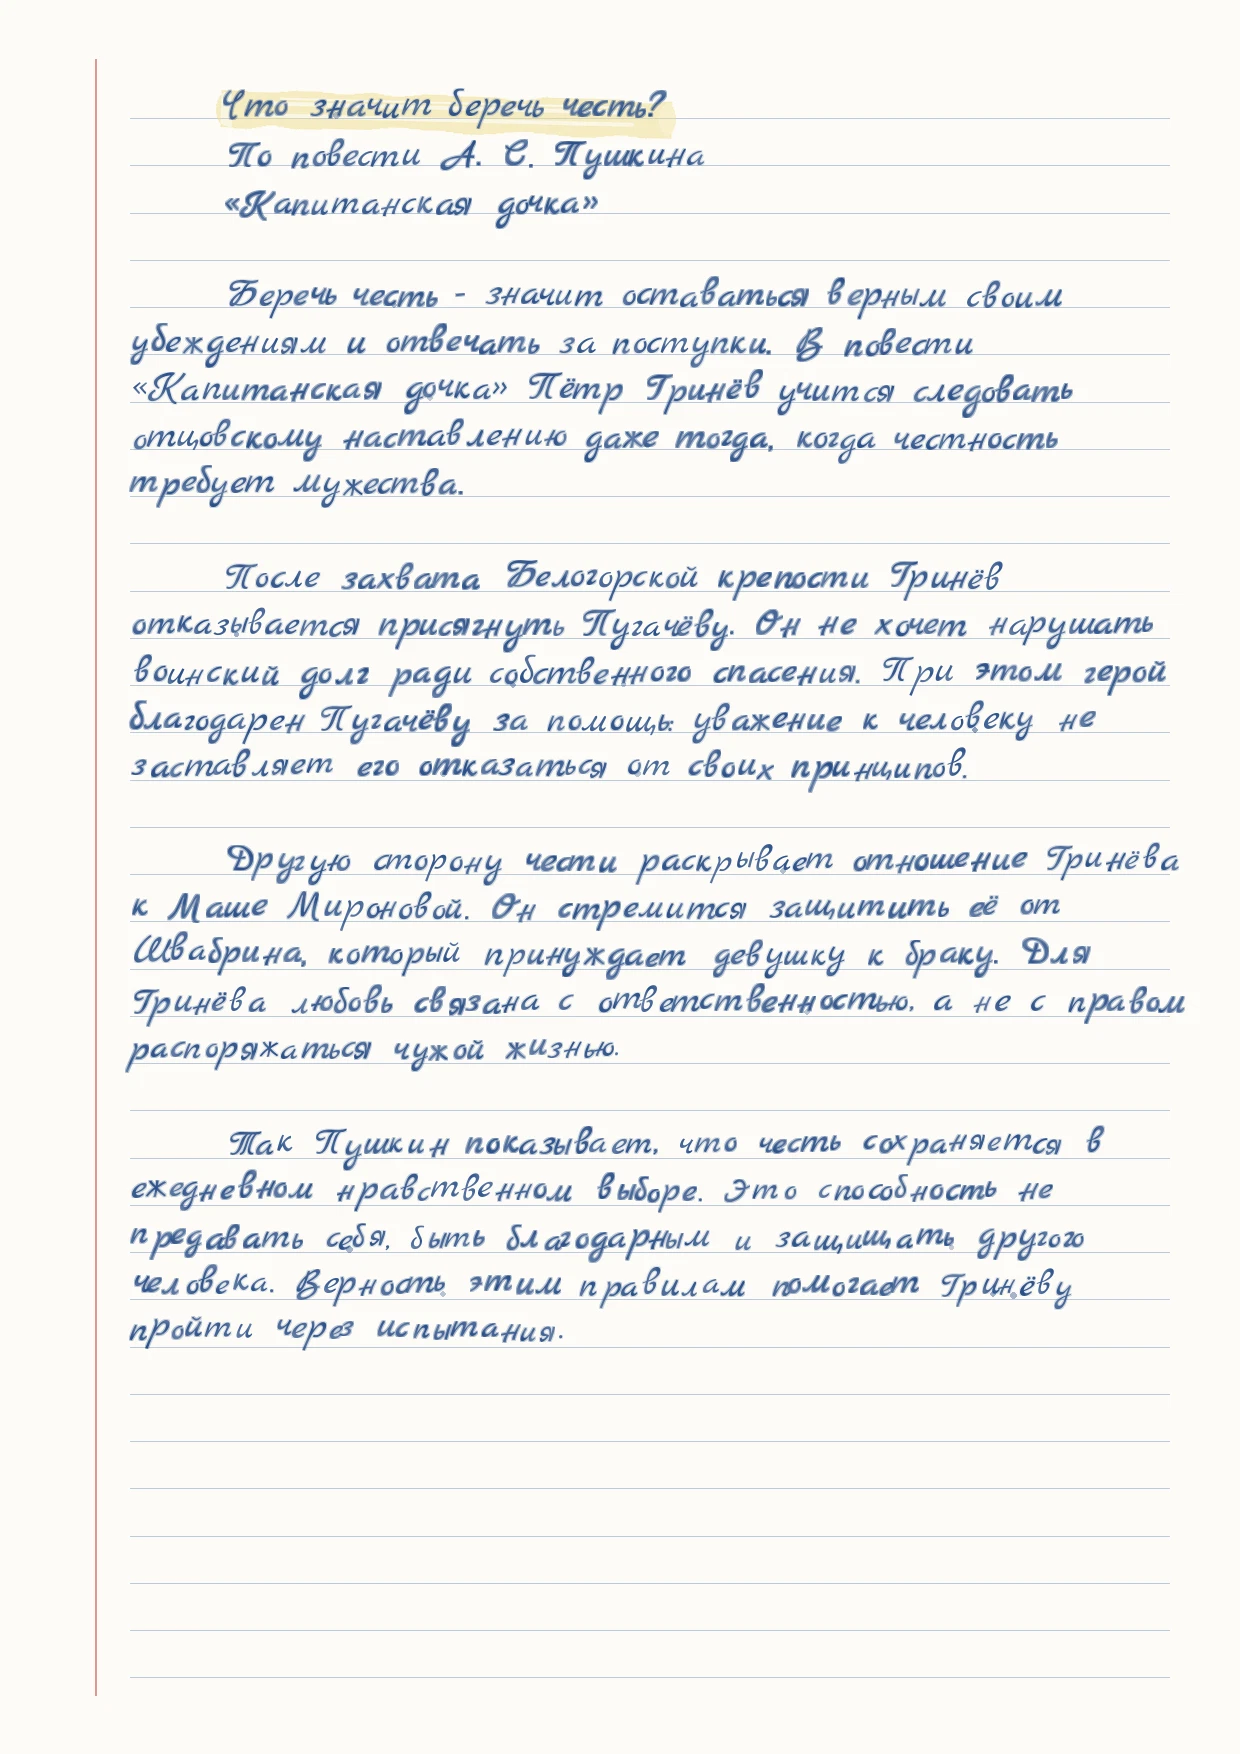 Что значит беречь честь?
По повести А. С. Пушкина
«Капитанская дочка»
Беречь честь - значит оставаться верным своим
убеждениям и отвечать за поступки. В повести
«Капитанская дочка» Пётр Гринёв учится следовать
отцовскому наставлению даже тогда, когда честность
требует мужества.
После захвата Белогорской крепости Гринёв
отказывается присягнуть Пугачёву. Он не хочет нарушать
воинский долг ради собственного спасения. При этом герой
благодарен Пугачёву за помощь: уважение к человеку не
заставляет его отказаться от своих принципов.
Другую сторону чести раскрывает отношение Гринёва
к Маше Мироновой. Он стремится защитить её от
Швабрина, который принуждает девушку к браку. Для
Гринёва любовь связана с ответственностью, а не с правом
распоряжаться чужой жизнью.
Так Пушкин показывает, что честь сохраняется в
ежедневном нравственном выборе. Это способность не
предавать себя, быть благодарным и защищать другого
человека. Верность этим правилам помогает Гринёву
пройти через испытания.